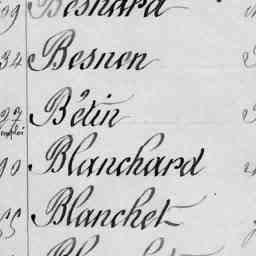 Besnard
34 Besnon
Bétin
90 Blanchard
65 Blanchet